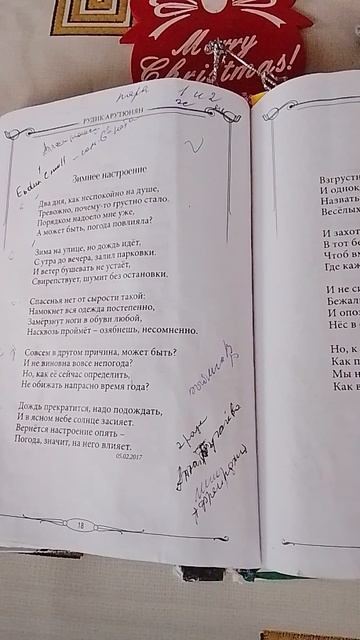 Merry
Christmas!
пара 1 и 2
РУДИК АРУТЮНЯН
Зимнее настроение
Два дня, как неспокойно на душе,
Тревожно, почему-то грустно стало.
Порядком надоело мне уже,
А может быть, погода повлияла?
Зима на улице, но дождь идёт,
С утра до вечера, залил парковки.
И ветер бушевать не устаёт,
Свирепствует, шумит без остановки.
Спасенья нет от сырости такой:
Намокнет вся одежда постепенно,
Замёрзнут ноги в обуви любой,
Насквозь проймёт – озябнешь, несомненно.
Совсем в другом причина, может быть?
И не виновна вовсе непогода?
Но, как её сейчас определить,
Не обижать напрасно время года?
Дождь прекратится, надо подождать,
И в ясном небе солнце засияет.
Вернётся настроение опять –
Погода, значит, на него влияет.
05.02.2017
18
Взгрусти
И однок
Назвать
Весёлы
И захот
В тот б
Чтоб в
Где каж
И не си
Бежал
И опо
Нёс в
Но, к
Как п
Мы н
Как в